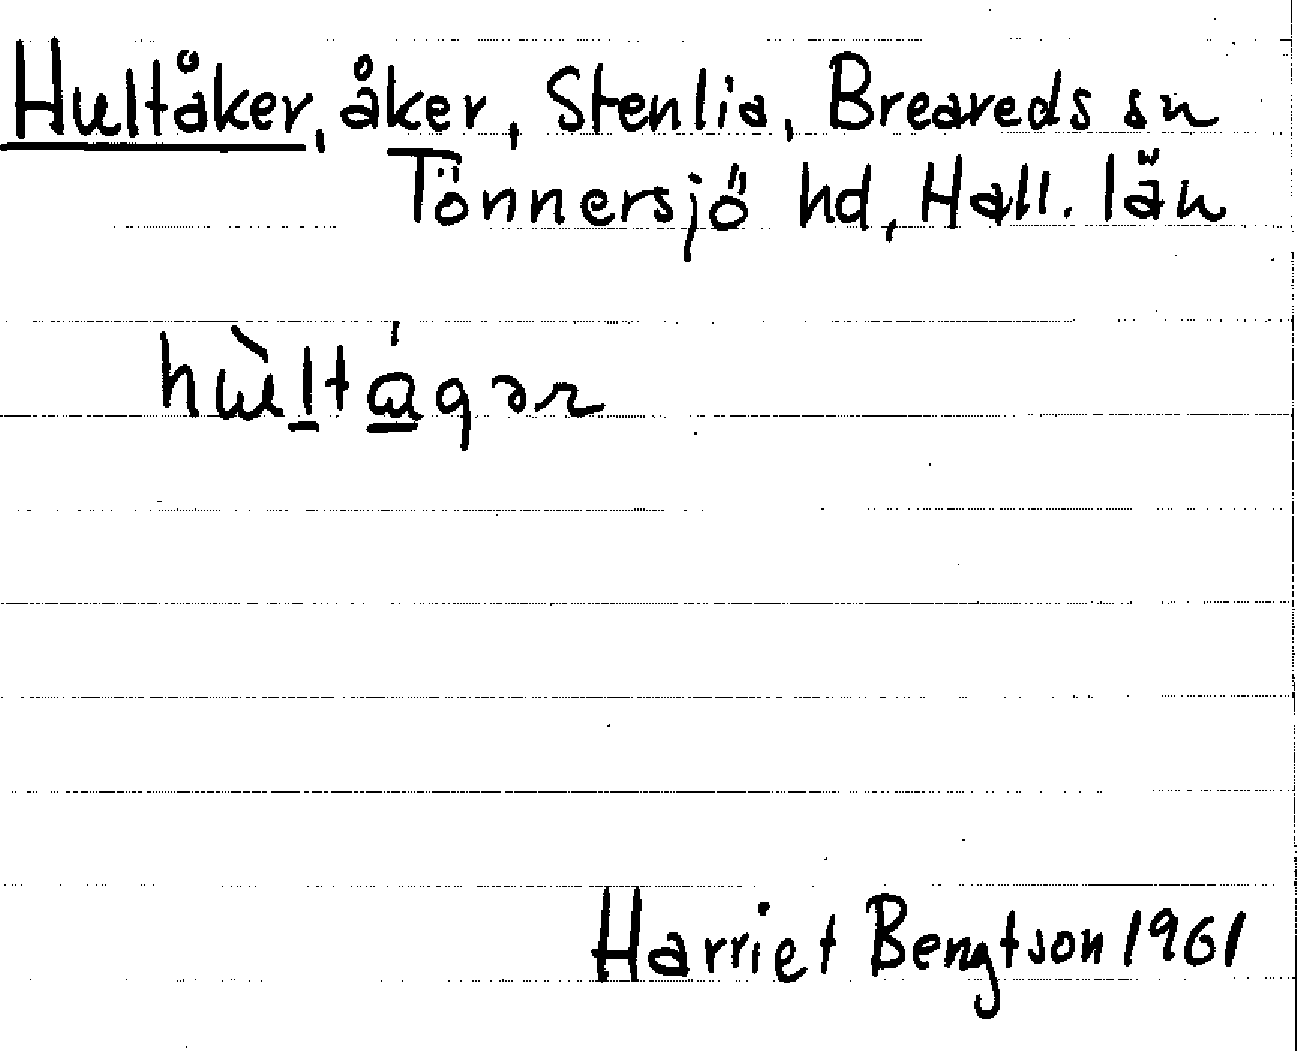 Hultåker, åker, Stenlia, Breareds sn
Tönnersjö hd, Hall. län
hùltágər
Harriet Bengtson 1961